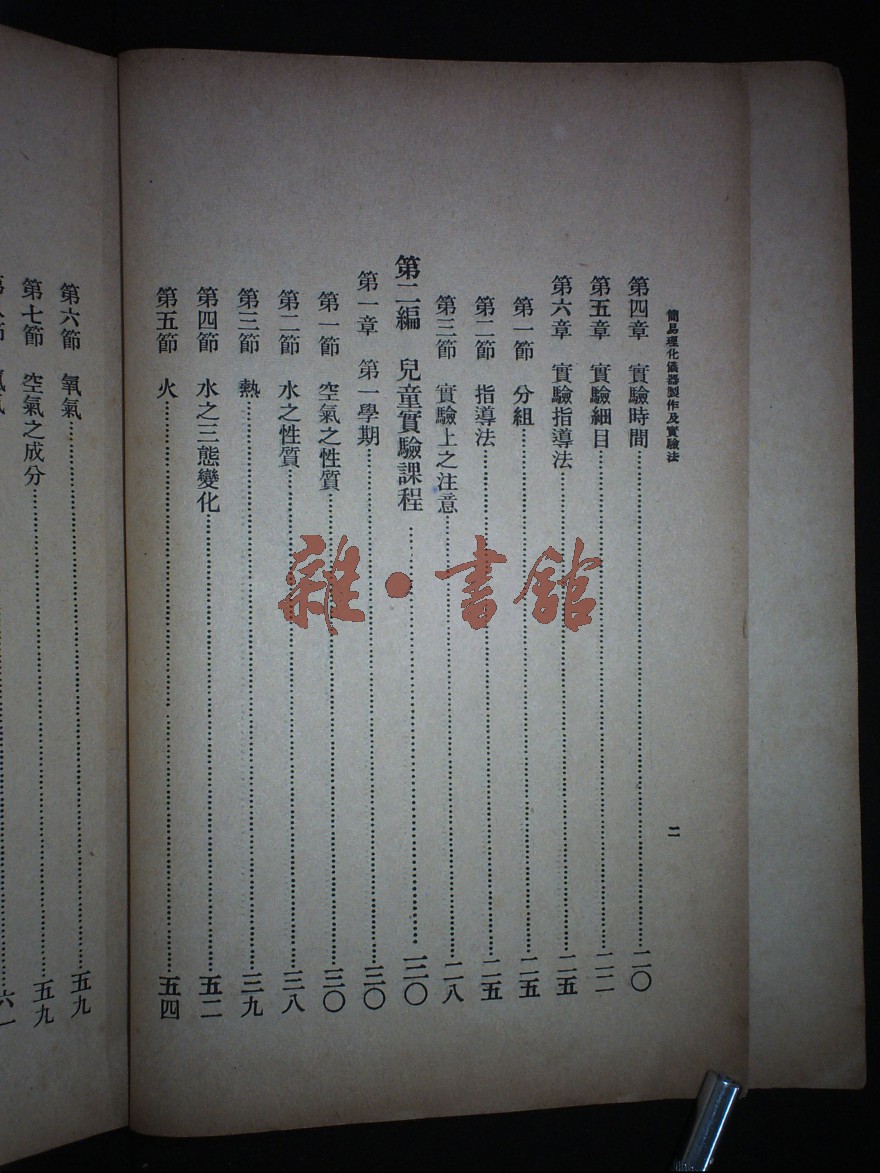 簡易理化儀器製作及實驗法
二
第四章 實驗時間……二〇
第五章 實驗細目……二二
第六章 實驗指導法……二五
第一節 分組……二五
第二節 指導法……二五
第三節 實驗上之注意……二八
第二編 兒童實驗課程……三〇
第一章 第一學期……三〇
第一節 空氣之性質……三〇
第二節 水之性質……三八
第三節 熱……三九
第四節 水之三態變化……五二
第五節 火……五四
第六節 氧氣……五九
第七節 空氣之成分……五九
雜·書館